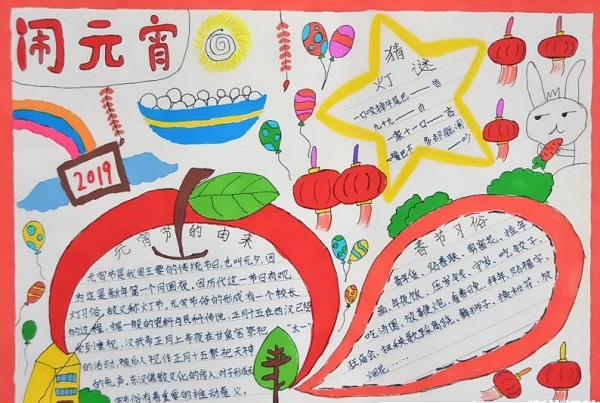 闹元宵
2019
猜
灯谜
一口咬掉牛尾巴——告
九十九——白
一家十一口——吉
嘴巴不多却能闹——吵
元宵节的由来
元宵节是我国主要的传统节日,也叫元夕,因
为这是新年第一个月圆夜,因历代这一节日有观
灯习俗,故又称灯节。元宵节俗的形成有一个较长
的过程,据一般的资料与民俗传说,正月十五在西汉已经
受到重视,汉武帝正月上辛夜在甘泉宫祭祀"太一"
的活动,被后人视作正月十五祭祀天神
的先声。东汉佛教文化的传入,对于形成元
宵节俗有着重要的推动意义。
春节习俗
贴春联
画,年夜饭,压岁钱,守岁,吃饺子,
吃汤圆,放鞭炮,看春晚,拜年,贴福字,
狂庙会,扭秧歌踩高跷,舞狮子,换桃符,放
烟花……